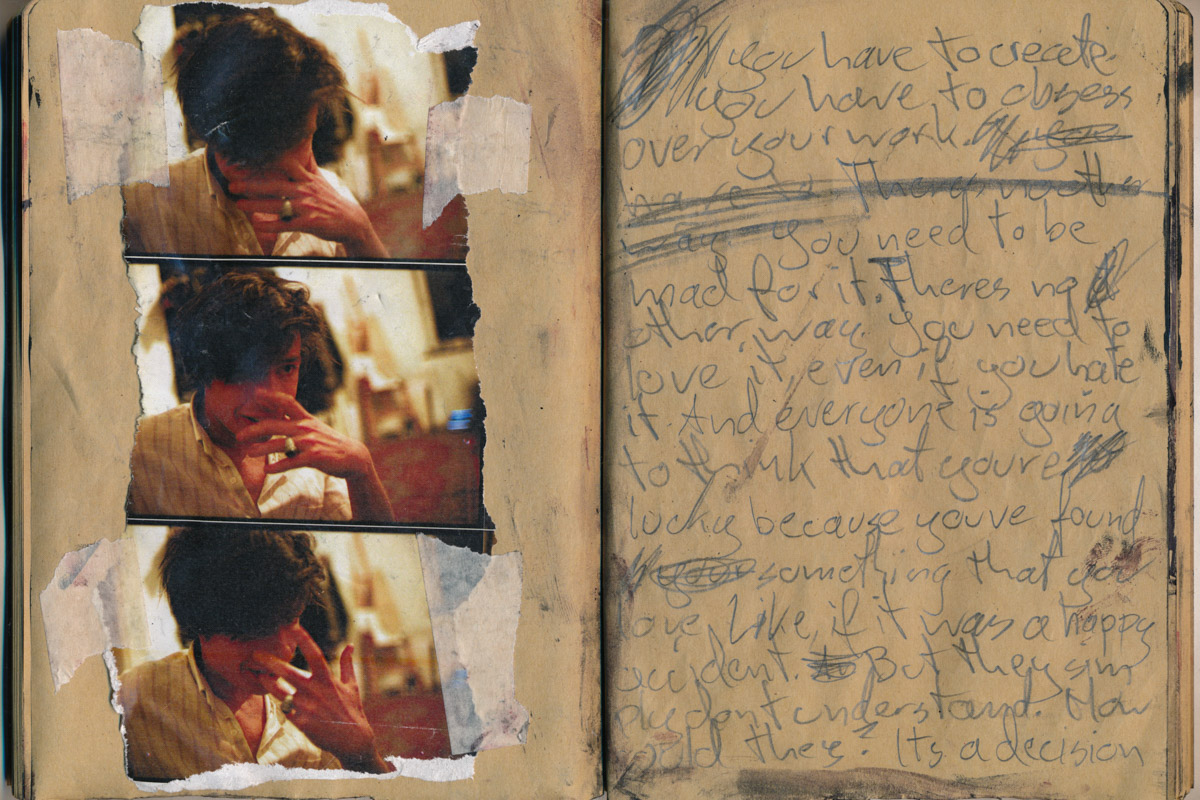 you have to create.
you have to obsess
over your work.
have to There's no other
way you need to be
mad for it. Theres no
other way. You need to
love it even if you hate
it. And everyone is going
to think that youre
lucky because youve found
something that you
love. Like, if it was a happy
accident. But they sim
ple dont understand. How
could they? Its a decision